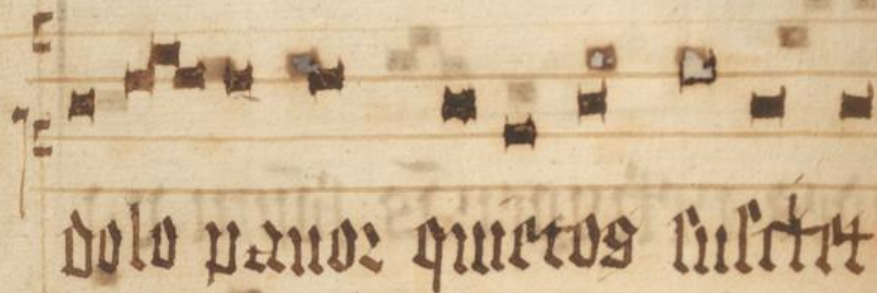 dolo pauor quietos suscitet